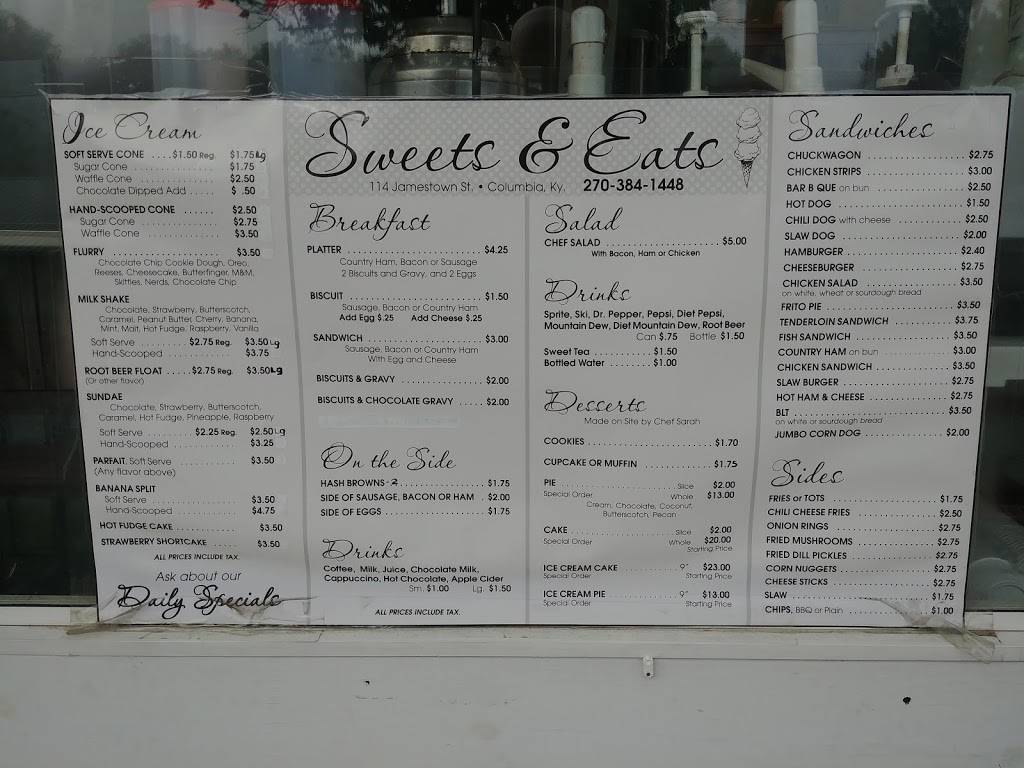 Ice Cream
SOFT SERVE CONE ....$1.50 Reg. $1.75 Lg
Sugar Cone .............. $1.75
Waffle Cone .............. $2.50
Chocolate Dipped Add ..... $ .50
HAND-SCOOPED CONE ...... $2.50
Sugar Cone .............. $2.75
Waffle Cone .............. $3.50
FLURRY .................... $3.50
Chocolate Chip Cookie Dough, Oreo,
Reeses, Cheesecake, Butterfinger, M&M,
Skittles, Nerds, Chocolate Chip
MILK SHAKE
Chocolate, Strawberry, Butterscotch,
Caramel, Peanut Butter, Cherry, Banana,
Mint, Malt, Hot Fudge, Raspberry, Vanilla
Soft Serve ........ $2.75 Reg. $3.50 Lg
Hand-Scooped .............. $3.75
ROOT BEER FLOAT .....$2.75 Reg. $3.50 Lg
(Or other flavor)
SUNDAE
Chocolate, Strawberry, Butterscotch,
Caramel, Hot Fudge, Pineapple, Raspberry
Soft Serve ........ $2.25 Reg. $2.50 Lg
Hand-Scooped .............. $3.25
PARFAIT, Soft Serve .......... $3.50
(Any flavor above)
BANANA SPLIT
Soft Serve .............. $3.50
Hand-Scooped .............. $4.75
HOT FUDGE CAKE ............ $3.50
STRAWBERRY SHORTCAKE ..... $3.50
ALL PRICES INCLUDE TAX.
Ask about our
Daily Specials
Sweets & Eats
114 Jamestown St. • Columbia, Ky. 270-384-1448
Breakfast
PLATTER ........................ $4.25
Country Ham, Bacon or Sausage
2 Biscuits and Gravy, and 2 Eggs
BISCUIT ........................ $1.50
Sausage, Bacon or Country Ham
Add Egg $.25 Add Cheese $.25
SANDWICH ........................ $3.00
Sausage, Bacon or Country Ham
With Egg and Cheese
BISCUITS & GRAVY .................. $2.00
BISCUITS & CHOCOLATE GRAVY ..... $2.00
On the Side
HASH BROWNS -2 .................. $1.75
SIDE OF SAUSAGE, BACON OR HAM . $2.00
SIDE OF EGGS .................. $1.75
Drinks
Coffee, Milk, Juice, Chocolate Milk,
Cappuccino, Hot Chocolate, Apple Cider
Sm. $1.00 Lg. $1.50
ALL PRICES INCLUDE TAX.
Salad
CHEF SALAD ........................ $5.00
With Bacon, Ham or Chicken
Drinks
Sprite, Ski, Dr. Pepper, Pepsi, Diet Pepsi,
Mountain Dew, Diet Mountain Dew, Root Beer
Can $.75 Bottle $1.50
Sweet Tea .............. $1.50
Bottled Water ........... $1.00
Desserts
Made on Site by Chef Sarah
COOKIES ........................ $1.70
CUPCAKE OR MUFFIN .............. $1.75
PIE ........................ Slice $2.00
Special Order Whole $13.00
Cream, Chocolate, Coconut,
Butterscotch, Pecan
CAKE ........................ Slice $2.00
Special Order Whole $20.00
Starting Price
ICE CREAM CAKE .............. 9" $23.00
Special Order Starting Price
ICE CREAM PIE .............. 9" $13.00
Special Order Starting Price
Sandwiches
CHUCKWAGON .................. $2.75
CHICKEN STRIPS .................. $3.00
BAR B QUE on bun .............. $2.50
HOT DOG ........................ $1.50
CHILI DOG with cheese .......... $2.50
SLAW DOG ........................ $2.00
HAMBURGER .................. $2.40
CHEESEBURGER .................. $2.75
CHICKEN SALAD .................. $3.50
on white, wheat or sourdough bread
FRITO PIE ........................ $3.50
TENDERLOIN SANDWICH .......... $3.75
FISH SANDWICH .................. $3.50
COUNTRY HAM on bun .......... $3.00
CHICKEN SANDWICH .............. $3.50
SLAW BURGER .................. $2.75
HOT HAM & CHEESE .............. $2.75
BLT ........................ $3.50
on white or sourdough bread
JUMBO CORN DOG .............. $2.00
Sides
FRIES or TOTS .................. $1.75
CHILI CHEESE FRIES .............. $2.50
ONION RINGS .................. $2.75
FRIED MUSHROOMS .............. $2.75
FRIED DILL PICKLES .............. $2.75
CORN NUGGETS .................. $2.75
CHEESE STICKS .................. $2.75
SLAW ........................ $1.75
CHIPS, BBQ or Plain .............. $1.00